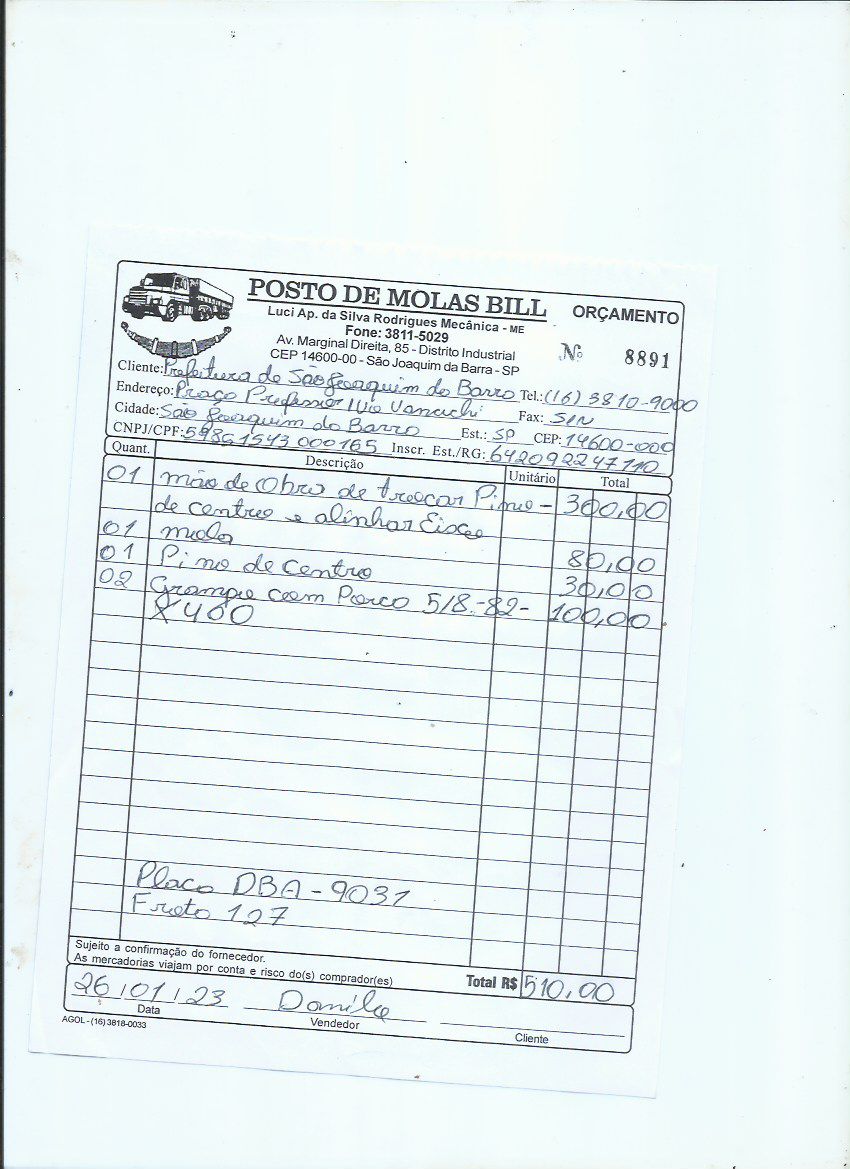 POSTO DE MOLAS BILL
ORÇAMENTO
Luci Ap. da Silva Rodrigues Mecânica - ME
Fone: 3811-5029
Av. Marginal Direita, 85 - Distrito Industrial
CEP 14600-00 - São Joaquim da Barra - SP
Nº 8891
Cliente: Prefeitura de São Joaquim da Barra Tel.: (16) 3810-9000
Endereço: Praça Professor Ivo Vanuchi Fax: S/N
Cidade: São Joaquim da Barra Est.: SP CEP: 14600-000
CNPJ/CPF: 59861543000165 Inscr. Est./RG: 642092247110
Quant. Descrição Unitário Total
01 mão de Obra de trocar Pino - 300,00
de centro e alinhar Eixo
01 mola 80,00
01 Pino de Centro 30,00
02 Grampo com Porca 5/8-82- 100,00
X 460
Placa DBA-9031
Frota 127
Sujeito a confirmação do fornecedor.
As mercadorias viajam por conta e risco do(s) comprador(es)
Total R$ 510,00
26/01/23 Danilo
Data Vendedor Cliente
AGOL - (16) 3818-0033